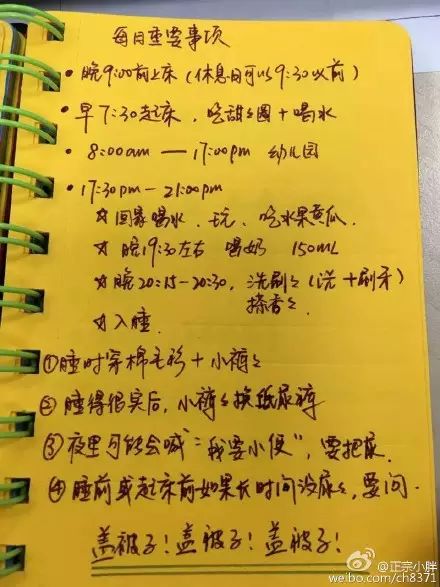 每日重要事项
• 晚9:00前上床（休息日可以9:30以前）
• 早7:30起床，吃甜甜圈+喝水
• 8:00am — 17:00pm 幼儿园
• 17:30pm — 21:00pm
☆ 回家喝水、玩、吃水果黄瓜.
☆ 晚19:30左右 喝奶 150mL
☆ 晚20:15-20:30，洗刷刷（洗+刷牙）
搽香香
☆ 入睡.
①睡时穿棉毛衫+小裤裤
②睡得很实后，小裤裤换纸尿裤
③夜里可能会喊“我要小便”，要把尿.
④睡前或起床前如果长时间没尿尿，要问.
盖被子！盖被子！盖被子！
@正宗小胖
weibo.com/ch8371